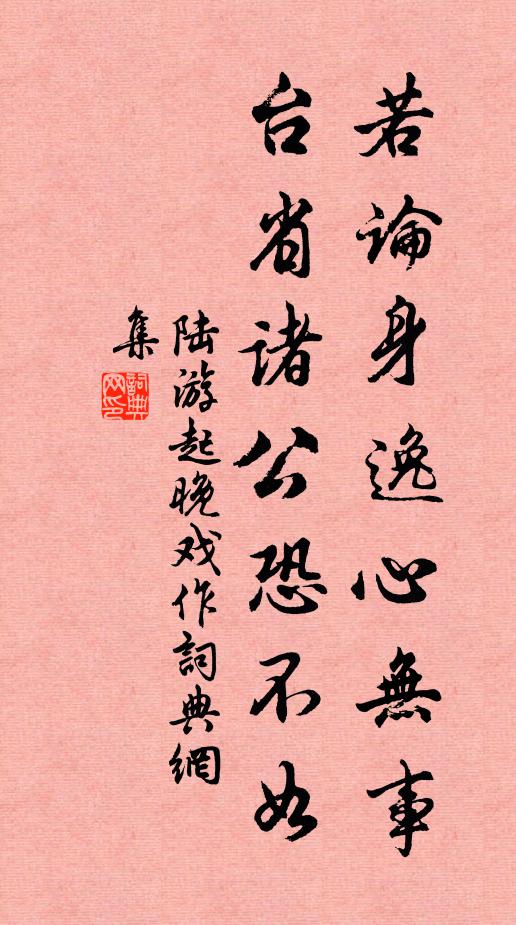 若論身逸心無事
台省諸公恐不如
陆游起晚戏作詞典網
集
詞典
网印